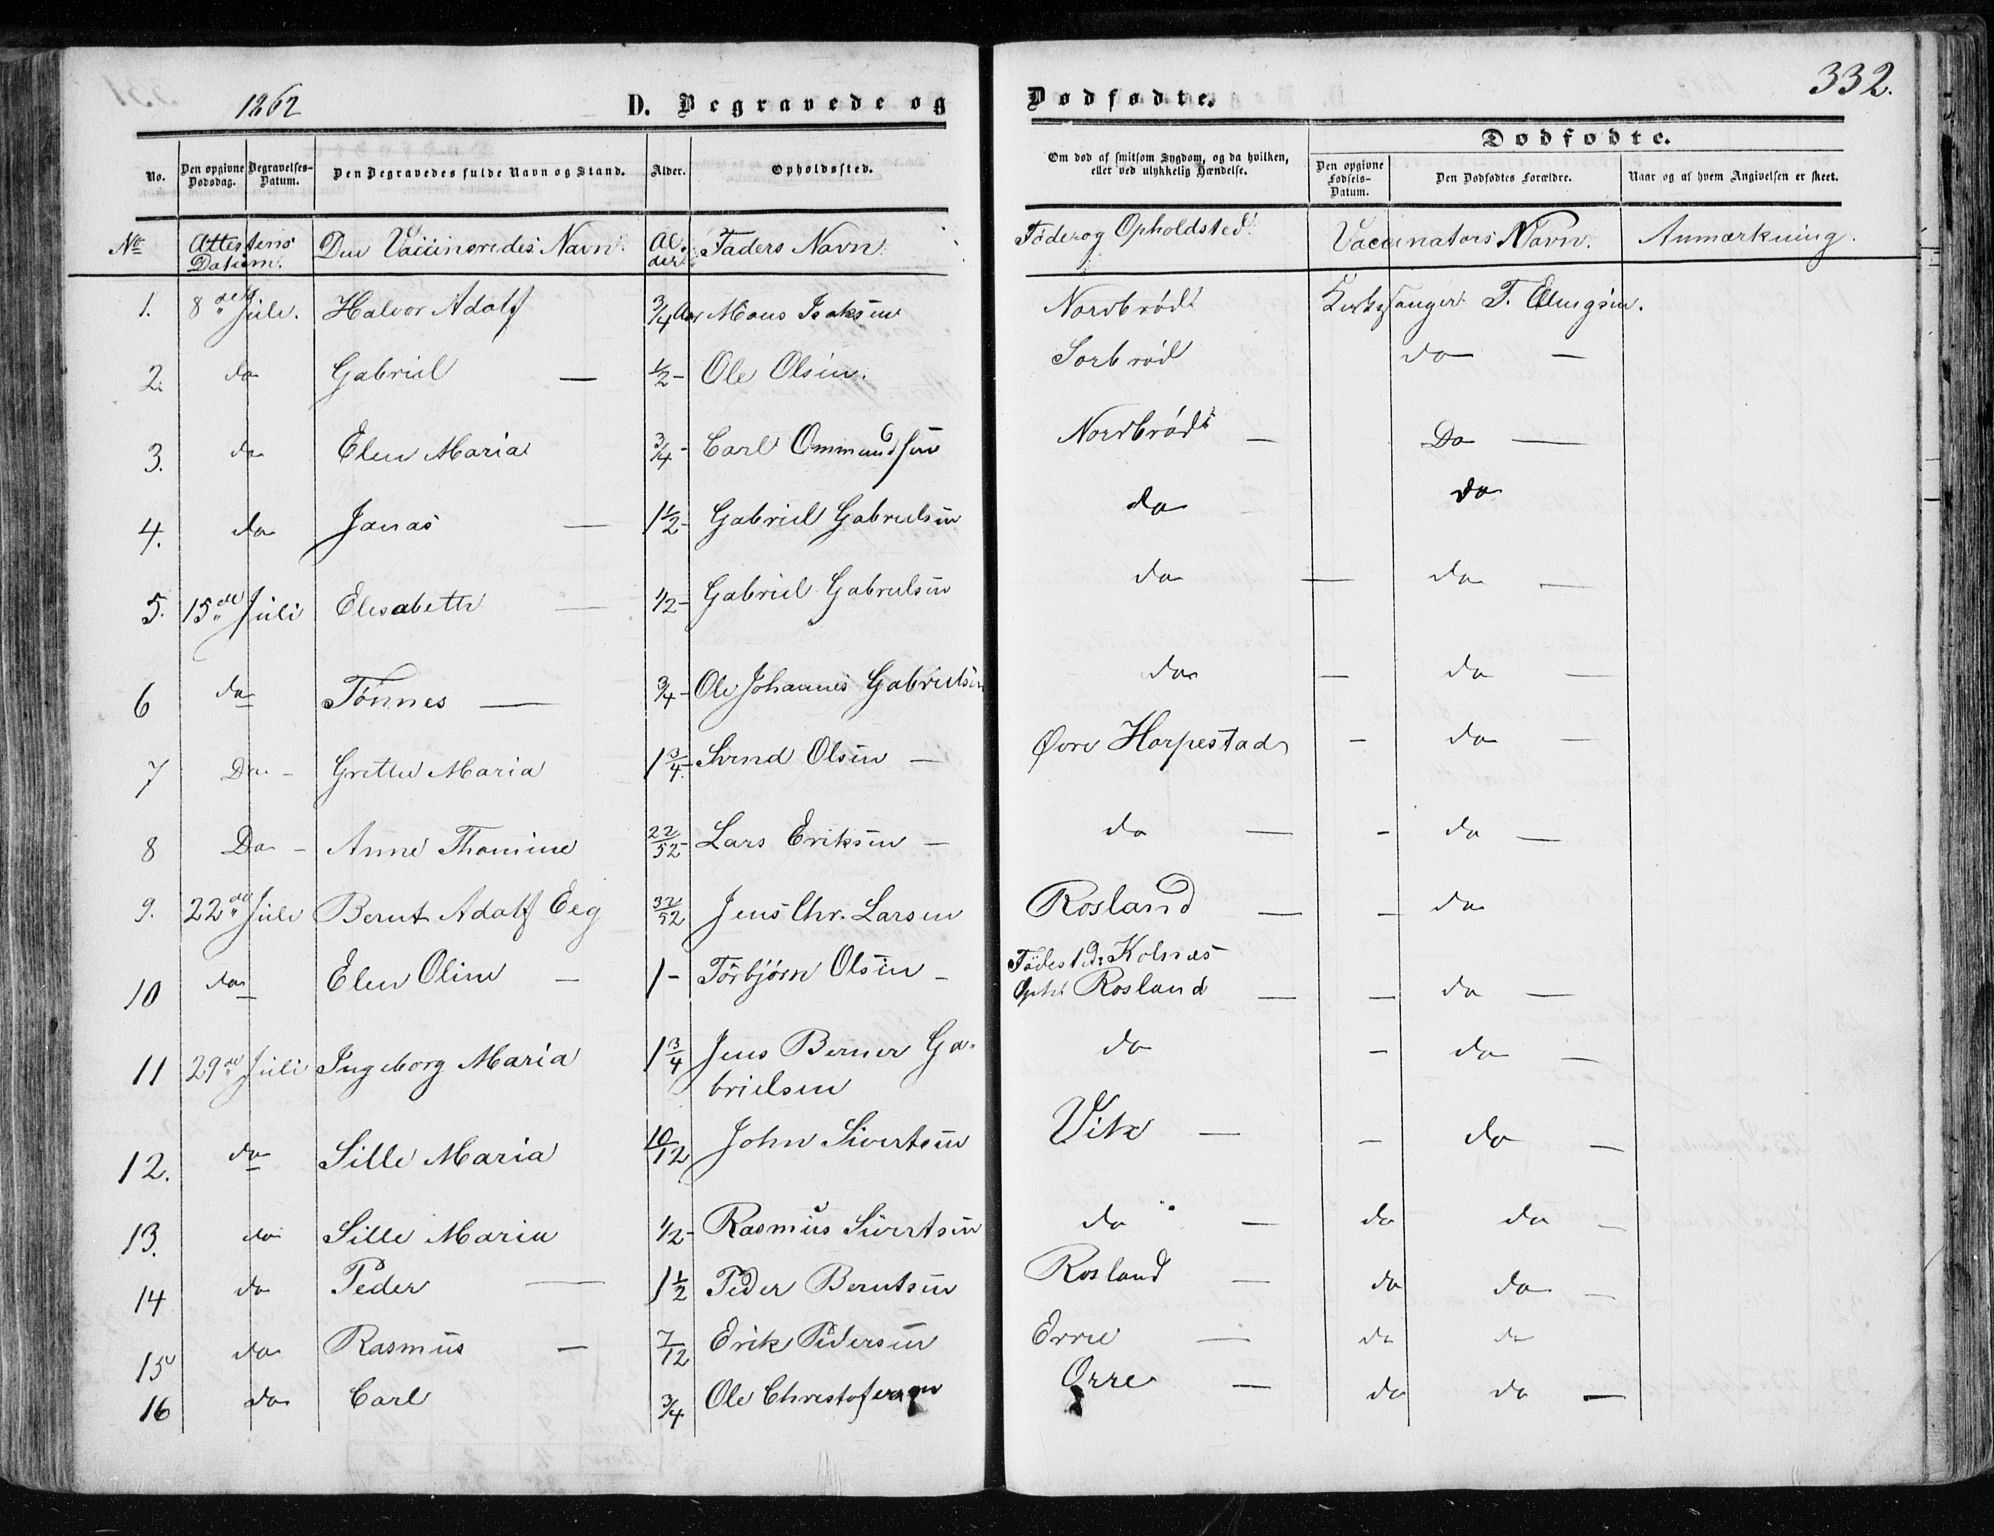 1862 D. Begravede og Dødfødte. 332.
Dødfødte.
No. Den opgivne Dødsdag. Begravelses-Datum. Den Begravedes fulde Navn og Stand. Alder. Opholdssted. Om død af smitsom Sygdom, og da hvilken, eller ved ulykkelig Hændelse. Den opgivne Fødsels-Datum. Den Dødfødtes Forældre. Naar og af hvem Angivelsen er skeet.
No Attestens Datum. Den Vaccineredes Navn. Alder Faders Navn. Føde og Opholdsted. Vaccinators Navn. Anmærkning.
1. 8de Juli. Halvor Adolf 3/4 Aar Mons Isaksen Nordbrødt Kirkesanger T.
2. do Gabriel — 1/2 - Ole Olsen. Sorbrød do —
3. do Elen Maria 3/4 - Carl Ommundsen Nordbrødt — Do —
4. do Jonas — 1 1/2 - Gabriel Gabrielsen do do
5. 15de Juli Elisabeth — 1/2 - Gabriel Gabrielsen do — do —
6 do Tønnes — 3/4 - Ole Johannes Gabrielsen do — do —
7 Do - Grethe Maria 1 3/4 - Svend Olsen — Øvre Horpestad - do —
8 Do - Anne Thomine 22/52 - Lars Eriksen — do — - do —
9. 22de Juli Bernt Adolf Eeg 32/52 Jens Chr. Larsen Rosland — - do
10 do Elen Oline — 1 - Torbjørn Olsen — Fødested: Kolnes
Oph: Rosland — - do —
11 29de Juli Ingeborg Maria 1 3/4 Jens Berner Ga-
brielsen do - do —
12. do Sille Maria 10/12 John Sivertsen Vik — - do —
13. do Sille Maria 1/2 - Rasmus Sivertsen do — do do —
14 do Peder — 1 1/2 Peder Berntsen Rosland — do do —
15 do Rasmus — 7/12 Erik Pedersen Erre — do do
16 do Carl 3/4 Ole Christofersen Orre — do do —